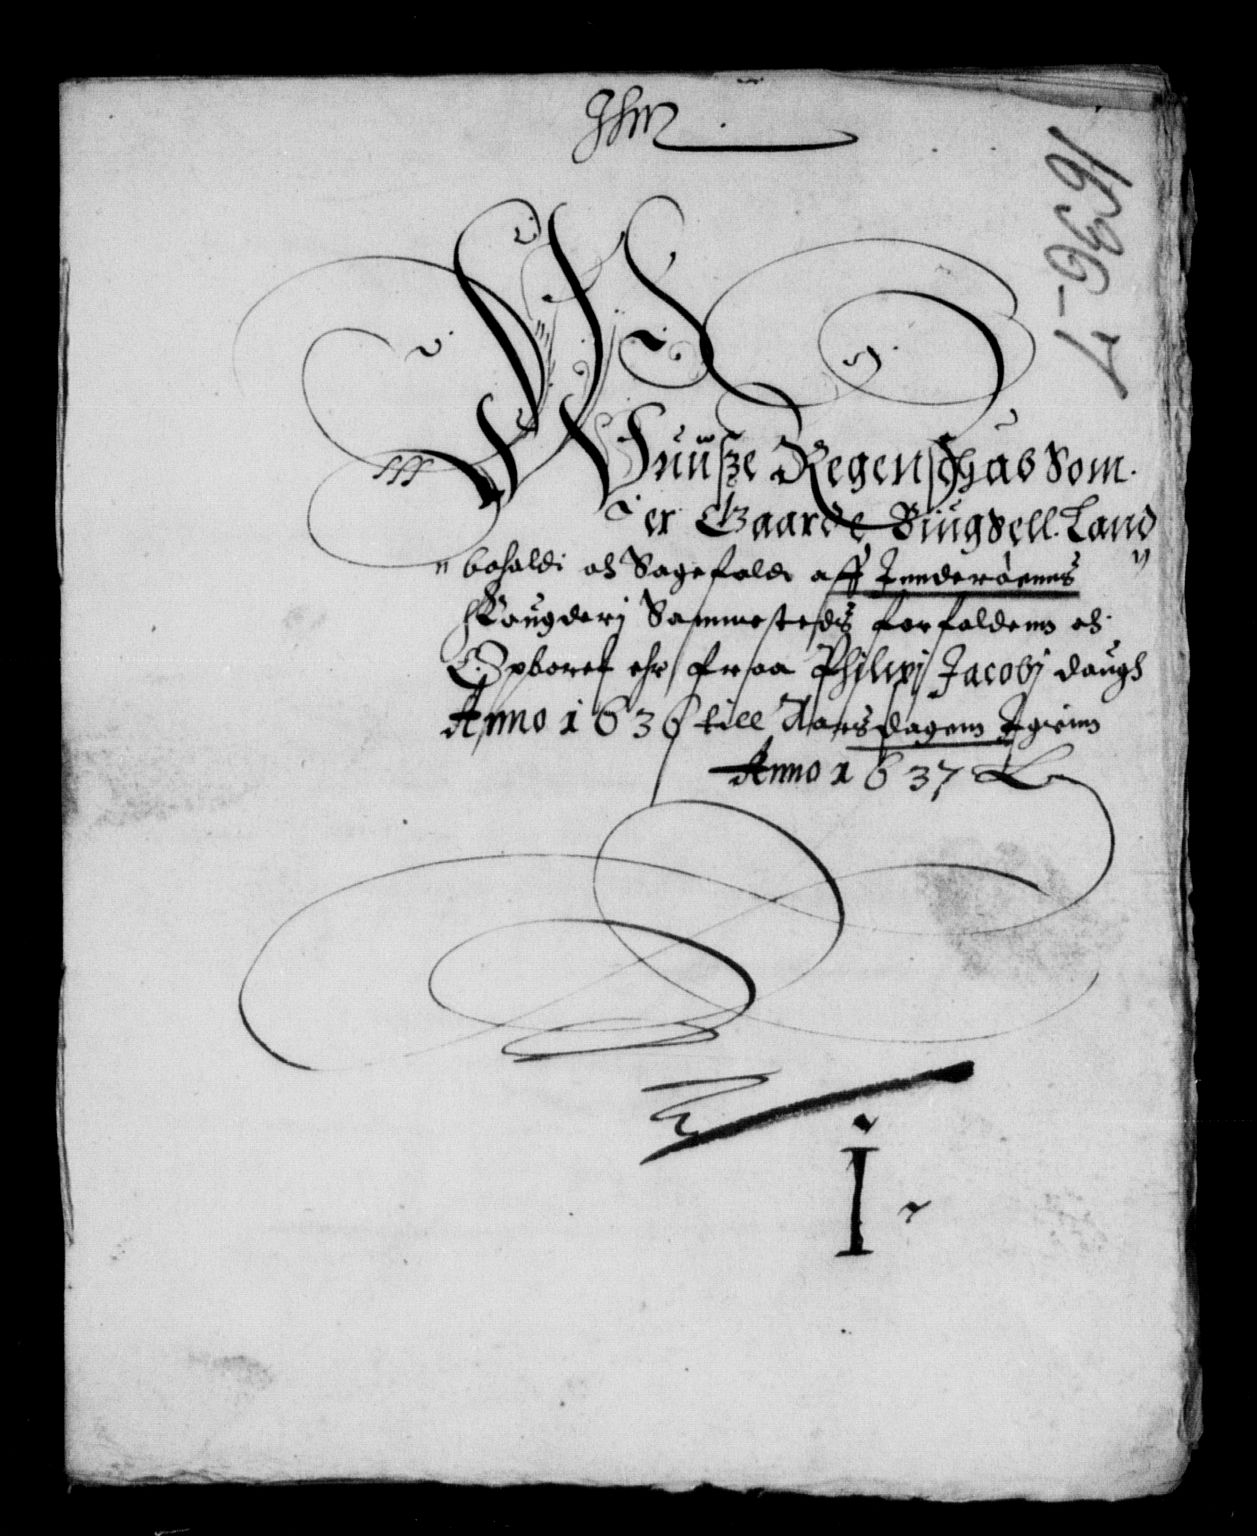 Jhm
1636-7
Wüüsze Regenschab Som
er Gaarde Büügsell. Land
boholdi och Sagefaldi aff Jnderøenns
ffougderj Sammesteds forfalden och
Opboret ehr fraa Philipi Jacobj daugh
Anno 1636 till Aarsdagenn Jgienn
Anno 1637
I